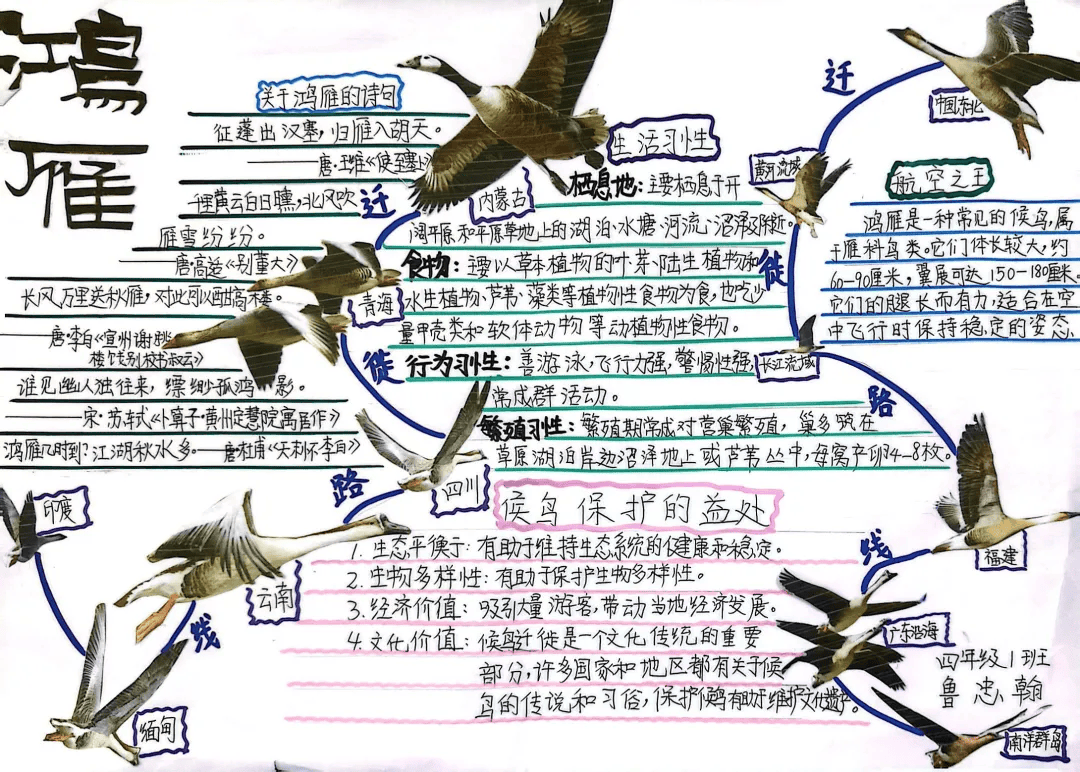 鸿雁
关于鸿雁的诗句
征蓬出汉塞，归雁入胡天。
——唐·王维《使至塞上》
千里黄云白日曛，北风吹
雁雪纷纷。
唐高适《别董大》
长风万里送秋雁，对此可以酣高楼。
——唐李白《宣州谢朓
楼饯别校书叔云》
谁见幽人独往来，缥缈孤鸿影。
——宋·苏轼《卜算子·黄州定慧院寓居作》
鸿雁几时到？江湖秋水多。——唐杜甫《天末怀李白》
生活习性
栖息地：主要栖息于开
阔平原和平原草地上的湖泊·水塘·河流·沼泽及附近。
食物：主要以草本植物的叶、芽、陆生植物和
水生植物、芦苇、藻类等植物性食物为食，也吃少
量甲壳类和软体动物等动植物性食物。
行为习性：善游泳，飞行力强，警惕性强，
常成群活动。
繁殖习性：繁殖期常成对营巢繁殖，巢多筑在
草原湖泊岸边沼泽地上或芦苇丛中，每窝产卵4—8枚。
航空之王
鸿雁是一种常见的候鸟，属
于雁科鸟类。它们体长较大，约
60—90厘米，翼展可达150—180厘米。
它们的腿长而有力，适合在空
中飞行时保持稳定的姿态。
候鸟保护的益处
1. 生态平衡于：有助于维持生态系统的健康和稳定。
2. 生物多样性：有助于保护生物多样性。
3. 经济价值：吸引大量游客，带动当地经济发展。
4. 文化价值：候鸟迁徙是一个文化传统的重要
部分，许多国家和地区都有关于候
鸟的传说和习俗，保护候鸟有助于维护文化遗产。
迁
徙
路
线
内蒙古
青海
四川
云南
印度
缅甸
迁
徙
路
线
中国东北
黄河流域
长江流域
福建
广东沿海
南洋群岛
四年级1班
鲁忠翰